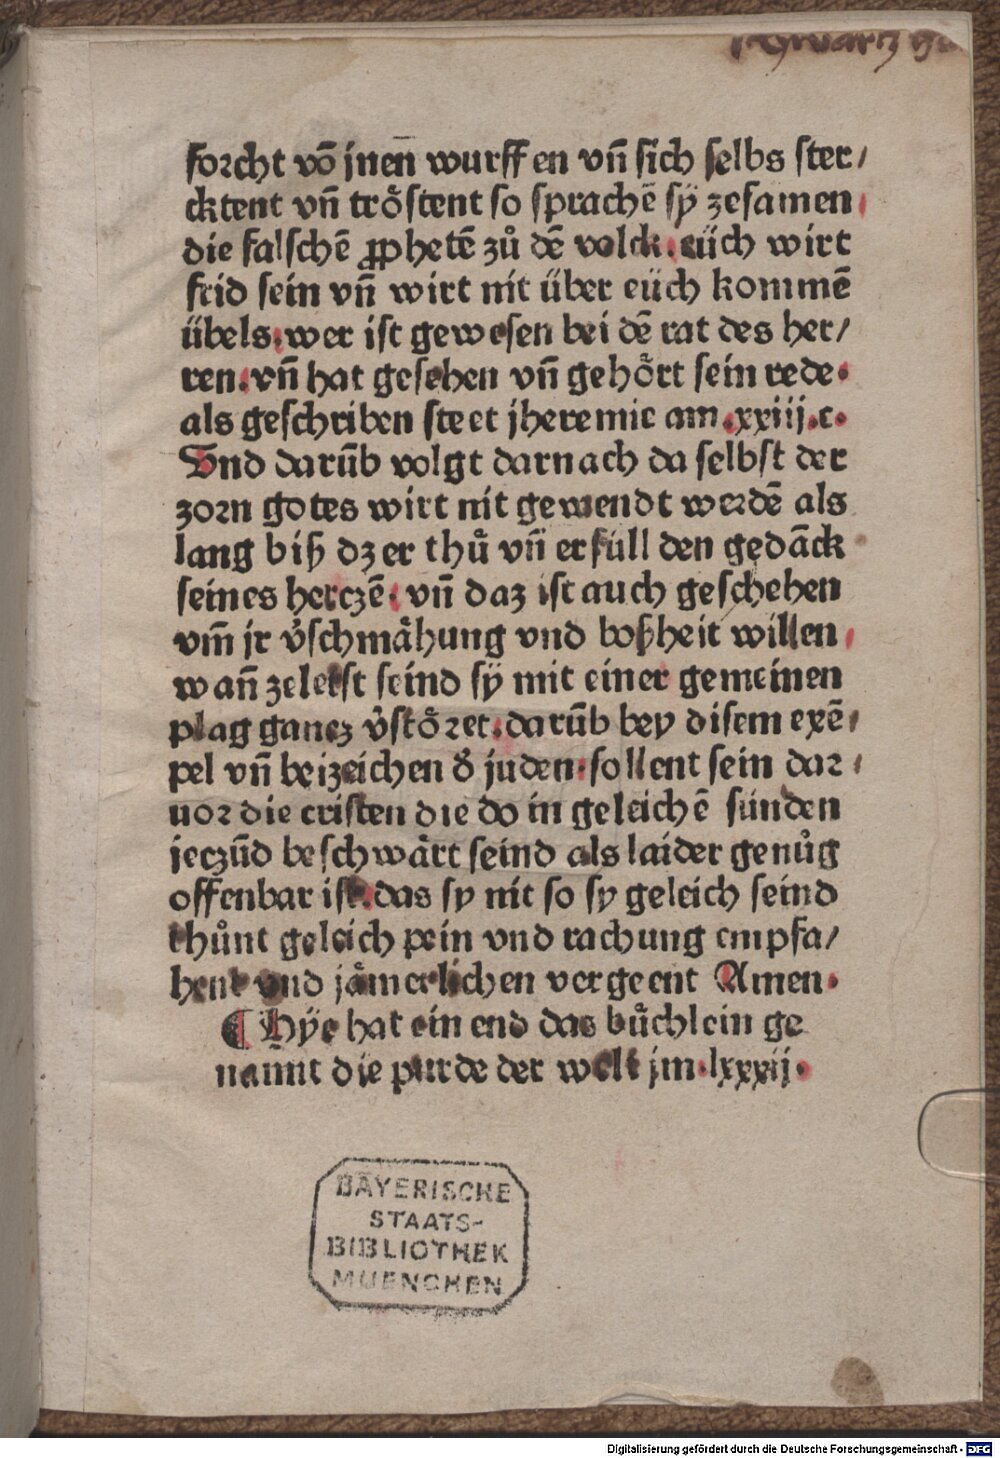 forcht võ jnen wurffen vñ sich selbs ster/
cktent vñ trőstent so sprachẽ sÿ zesamen
die falschẽ ꝓphetẽ zů dẽ volck. eüch wirt
frid sein vñ wirt nit über eüch kommẽ
übels. wer ist gewesen bei dẽ rat des her/
ren. vñ hat gesehen vñ gehőrt sein rede.
als geschriben steet jheremie am .xxiij.c.
Vnd darũb volgt darnach da selbst der
zorn gotes wirt nit gewendt werdẽ als
lang biß dz er thů vñ erfull den gedãck
seines herczẽ. vñ daz ist auch geschehen
vm̃ jr v̉schmåhung vnd boßheit willen
wañ zeletst seind sÿ mit einer gemeinen
plag gancz v̉stőret. darũb bey disem exẽ
pel vñ beizeichen d̉ juden. sollent sein dar
uor die cristen die do in geleichẽ sünden
jeczũd beschwårt seind als laider genůg
offenbar ist. das sy nit so sy geleich seind
thůnt geleich pein vnd rachung empfa/
hent vnd jåmerlichen vergeent Amen.
¶ Hÿe hat ein end das bůchlein ge
nannt die purde der welt jm .lxxxij.
BAYERISCHE
STAATS-
BIBLIOTHEK
MUENCHEN
Digitalisierung gefördert durch die Deutsche Forschungsgemeinschaft - DFG